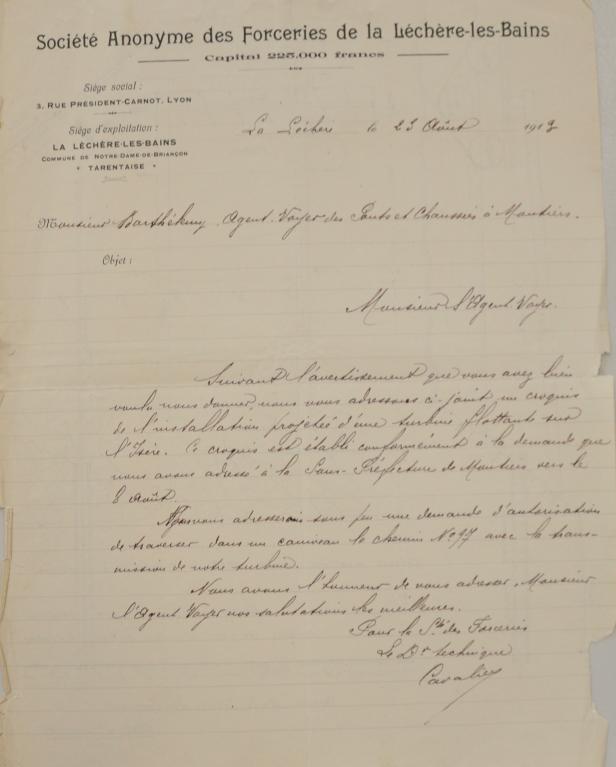 Société Anonyme des Forceries de la Léchère-les-Bains
Capital 225,000 francs
Siège social :
3, RUE PRÉSIDENT-CARNOT, LYON
Siège d'exploitation :
LA LÉCHÈRE-LES-BAINS
COMMUNE DE NOTRE-DAME-DE-BRIANÇON
TARENTAISE
La Léchère le 23 Août 1912
Monsieur Barthélemy Agent-Voyer des Ponts et Chaussées à Moutiers.
Objet :
Monsieur l'Agent-Voyer.
Suivant l'avertissement que vous avez bien
voulu nous donner, nous vous adressons ci-joint un croquis
de l'installation projetée d'une turbine flottante sur
l'Isère. Ce croquis est établi conformément à la demande que
nous avons adressé à la Sous-Préfecture de Moutiers vers le
8 Août.
Nous vous adresserons sous peu une demande d'autorisation
de traverser dans un caniveau le chemin No 97 avec la trans-
mission de notre turbine.
Nous avons l'honneur de vous adresser, Monsieur
l'Agent-Voyer nos salutations les meilleures.
Pour la Sté des Forceries
Le Dr technique
Cavalier